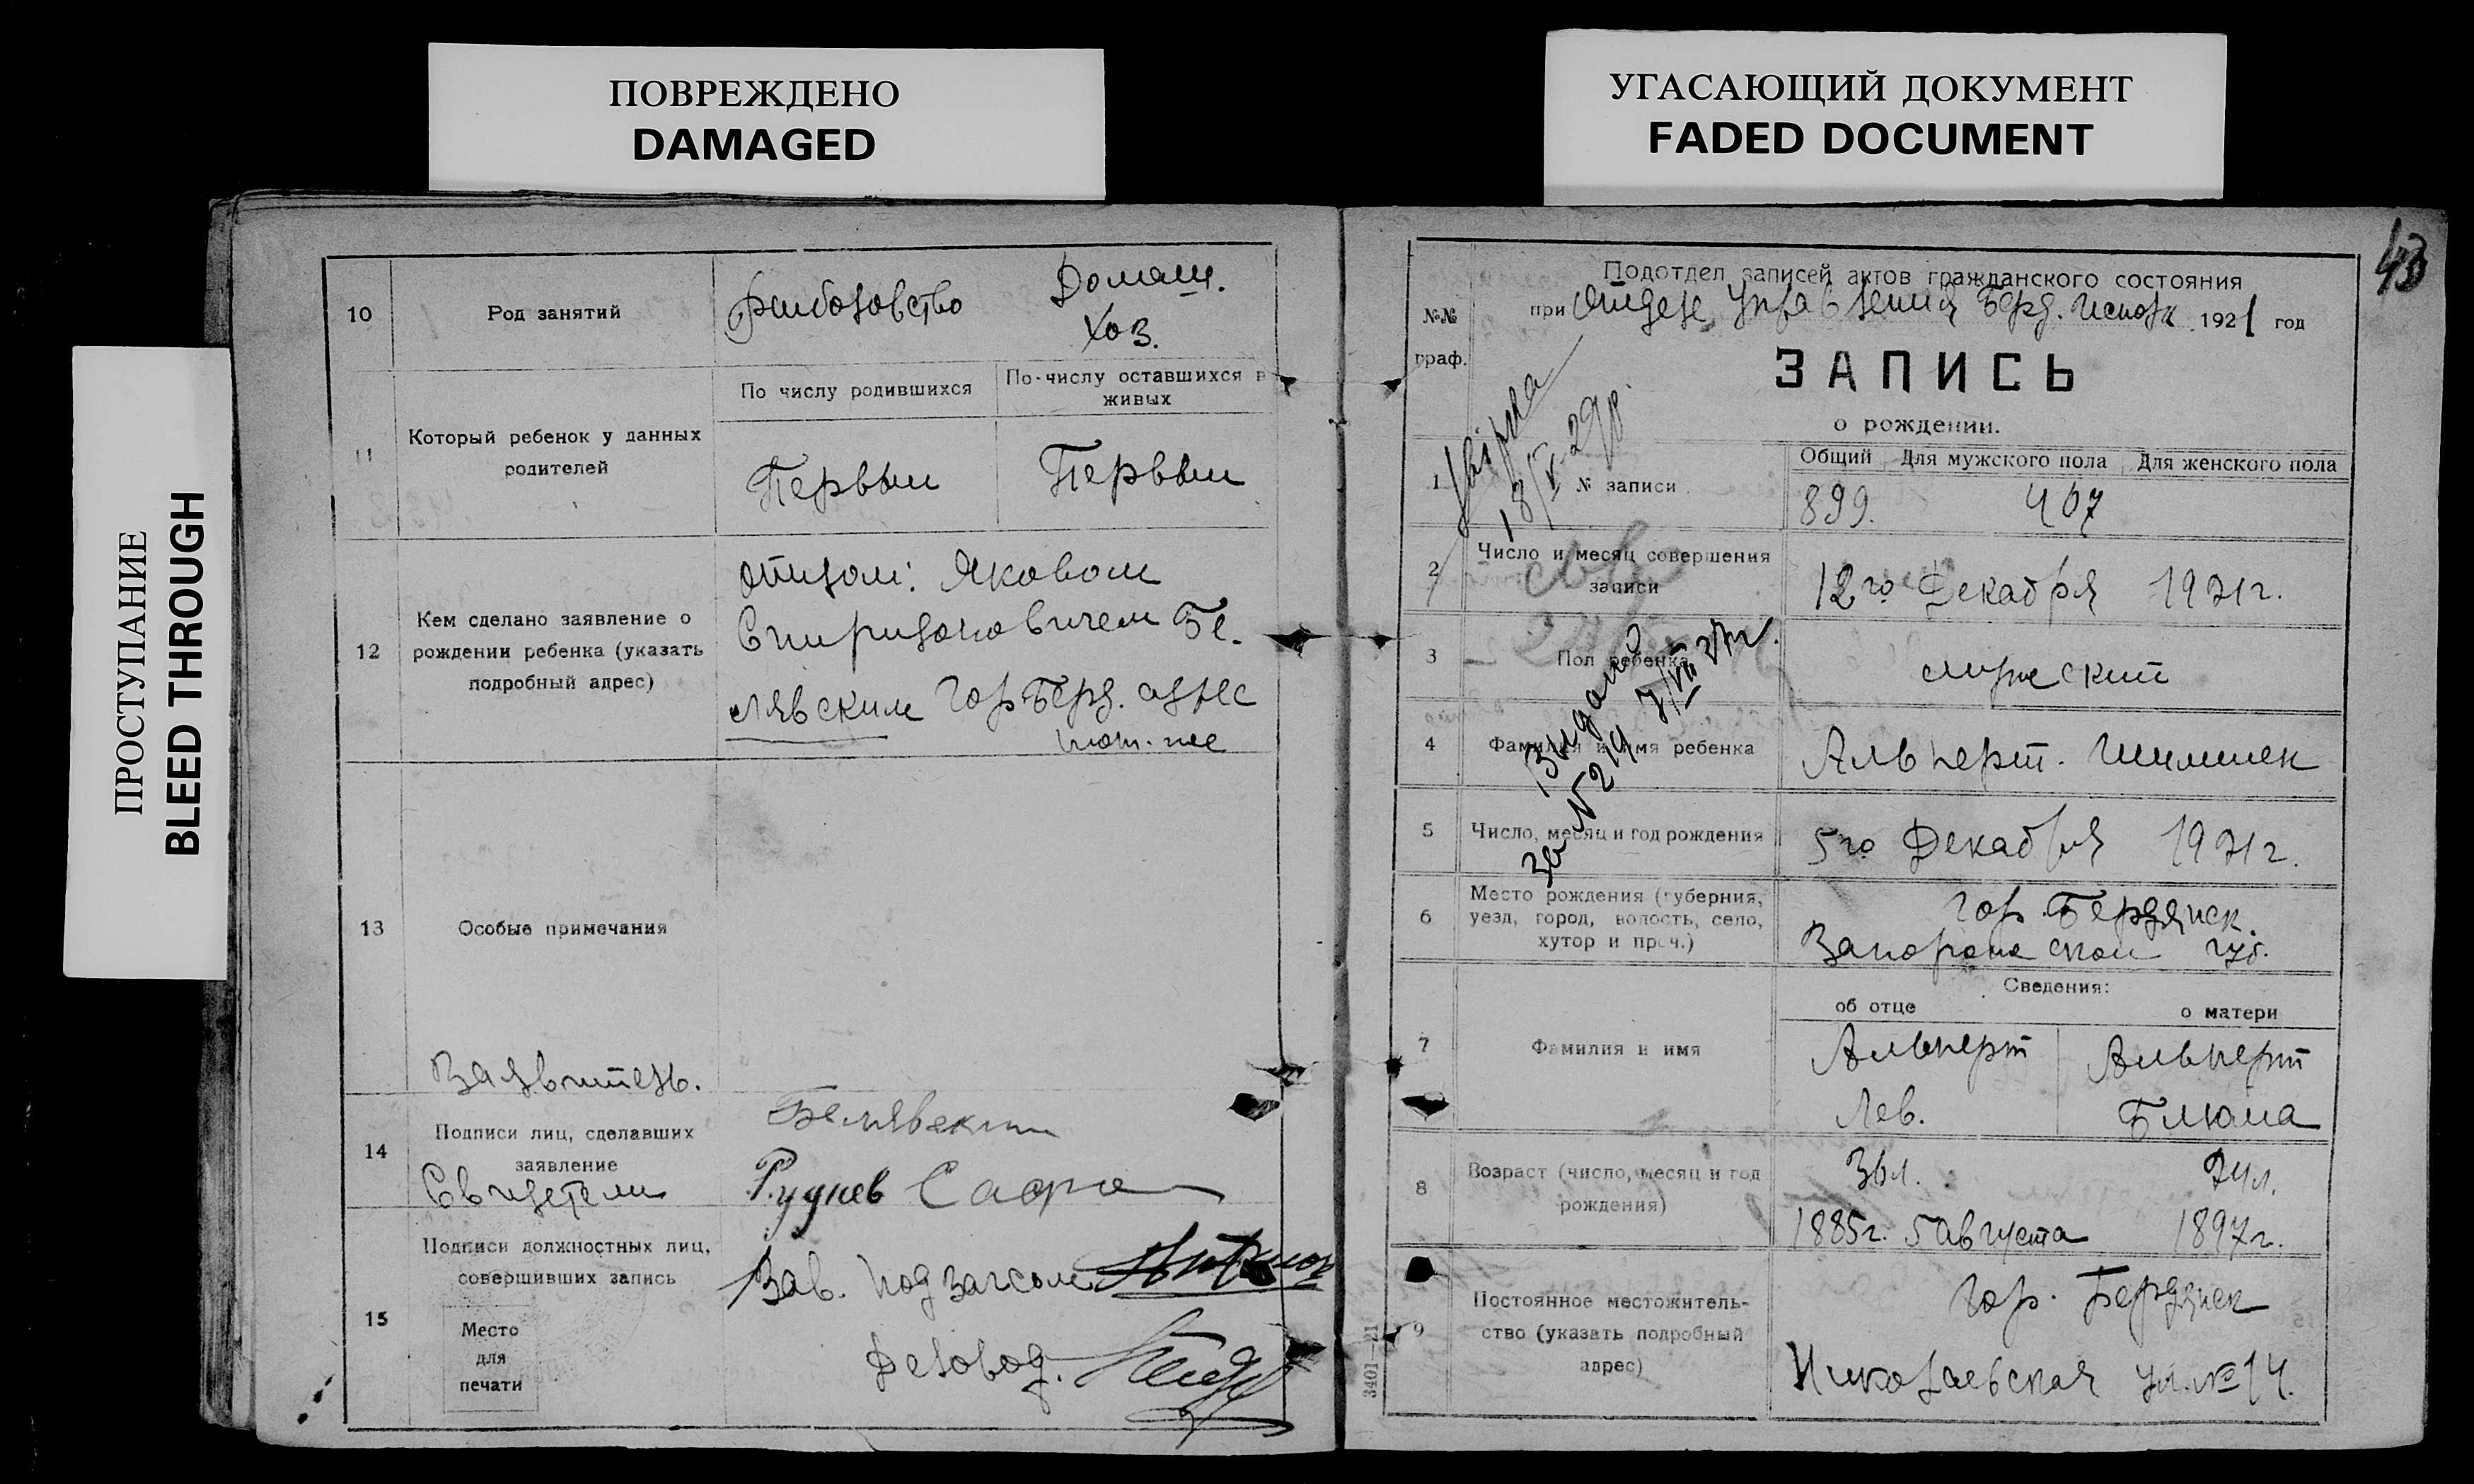 ПОВРЕЖДЕНО
DAMAGED
УГАСАЮЩИЙ ДОКУМЕНТ
FADED DOCUMENT
ПРОСТУПАНИЕ
BLEED THROUGH
10
Род занятий
Рыболовство
Домаш.
Хоз.
11
Который ребенок у данных
родителей
По числу родившихся
По числу оставшихся в
живых
Первый
Первый
12
Кем сделано заявление о
рождении ребенка (указать
подробный адрес)
отцом: Яковом
Спиридоновичем Бе-
лявским гор Берд. адрес
тот-же
13
Особые примечания
Заявитель.
14
Подписи лиц, сделавших
заявление
Свидетели
Белявский
Руднев
15
Подписи должностных лиц,
совершивших запись
Место
для
печати
Зав. подзагсом
Деловод.
43
№№
граф.
Подотдел записей актов гражданского состояния
при Отделе Управления Берд. Исполк. 1921 год
ЗАПИСЬ
о рождении.
1
№ записи
Общий
Для мужского пола
Для женского пола
899.
467
2
Число и месяц совершения
записи
12го Декабря 1921г.
3
Пол ребенка
мужеский
4
Фамилия и имя ребенка
Альперт. Шимшек
5
Число, месяц и год рождения
5го Декабря 1921г.
6
Место рождения (губерния,
уезд, город, волость, село,
хутор и проч.)
гор. Бердянск.
Запорожской губ.
7
Фамилия и имя
Сведения:
об отце
о матери
Альперт
Лев.
Альперт
Блюма
8
Возраст (число, месяц и год
рождения)
36л.
24л.
1885г. 5 августа
1897г.
9
Постоянное местожитель-
ство (указать подробный
адрес)
гор. Бердянск
Николаевская ул. № 14.
3401—21